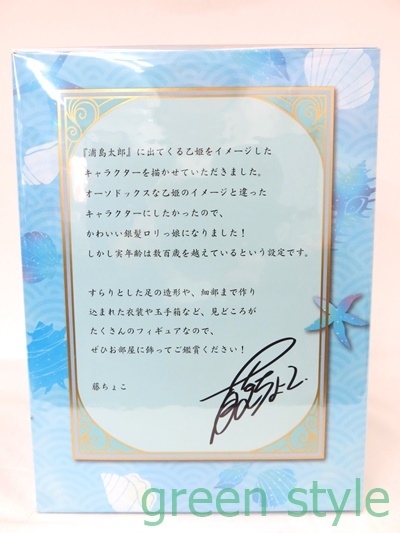 『浦島太郎』に出てくる乙姫をイメージした
キャラクターを描かせていただきました。
オーソドックスな乙姫のイメージと違った
キャラクターにしたかったので、
かわいい銀髪ロリっ娘になりました！
しかし実年齢は数百歳を越えているという設定です。
すらりとした足の造形や、細部まで作り
込まれた衣装や玉手箱など、見どころが
たくさんのフィギュアなので、
ぜひお部屋に飾ってご鑑賞ください！
藤ちょこ
藤ちょこ
green style